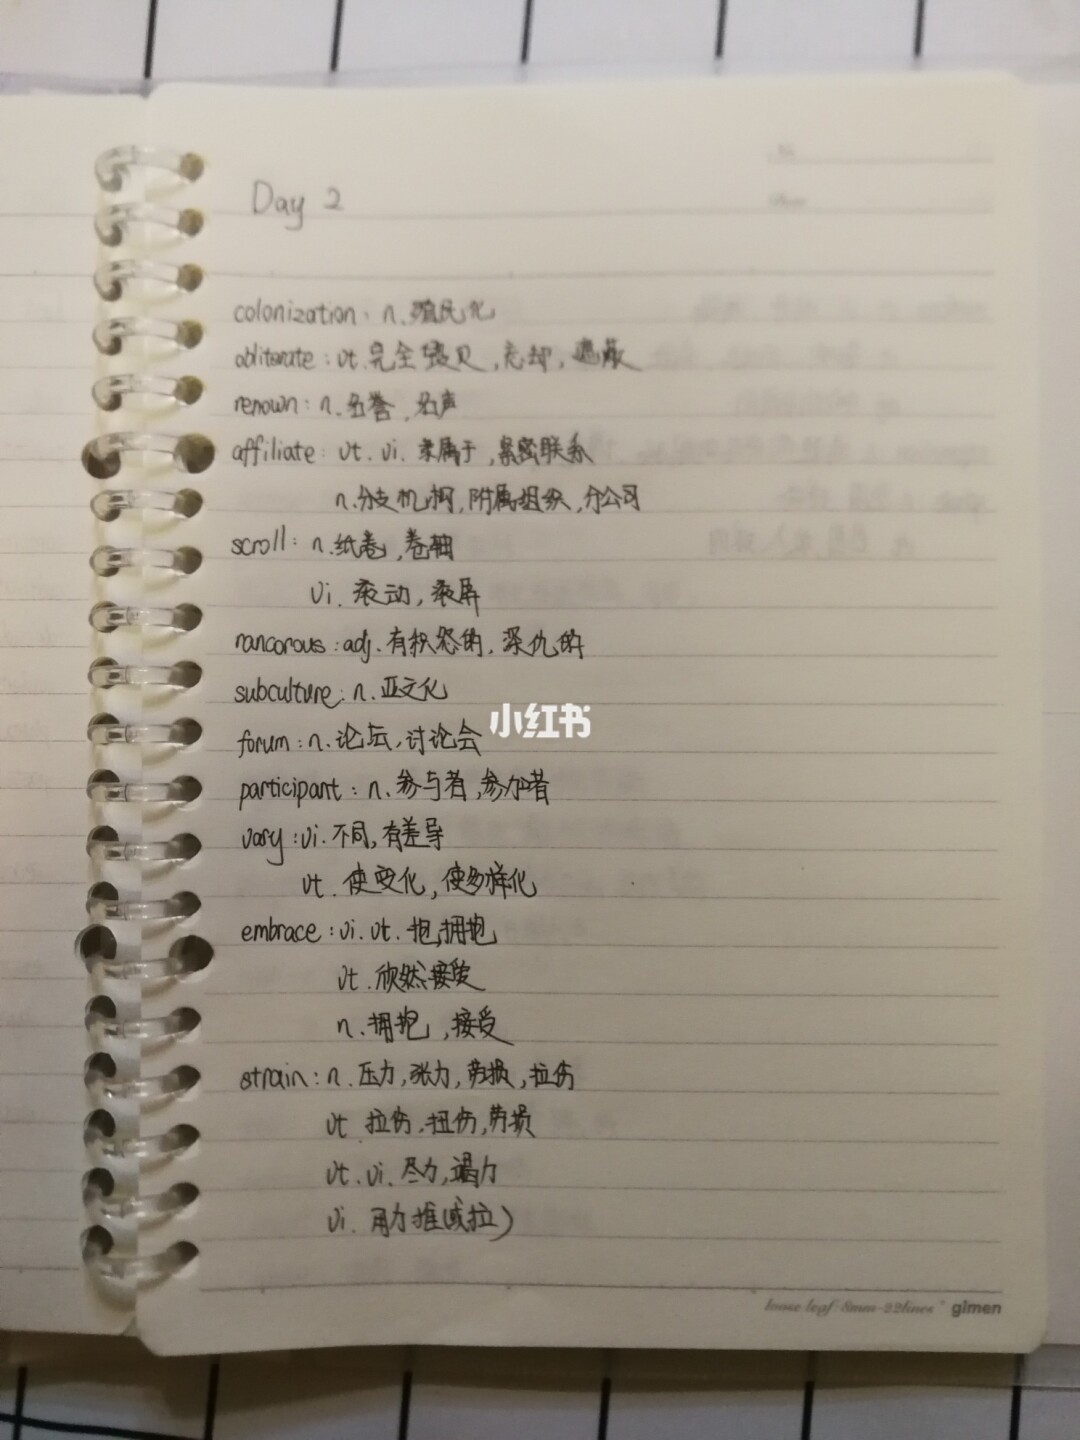 Day 2
colonization: n. 殖民化
obliterate: vt. 完全毁灭, 忘却, 遮蔽
renown: n. 名誉、名声
affiliate: vt. vi. 隶属于, 紧密联系
n. 分支机构, 附属组织, 分公司
scroll: n. 纸卷, 卷轴
vi. 滚动, 滚屏
rancorous: adj. 有积怨的, 深仇的
subculture: n. 亚文化
小红书
forum: n. 论坛, 讨论会
participant: n. 参与者, 参加者
vary: vi. 不同, 有差异
vt. 使变化, 使多样化
embrace: vi. vt. 抱, 拥抱
vt. 欣然接受
n. 拥抱, 接受
strain: n. 压力, 张力, 劳损, 拉伤
vt. 拉伤, 扭伤, 劳损
vt. vi. 尽力, 竭力
vi. 用力推(或拉)
loose leaf·8mm-22lines gimen